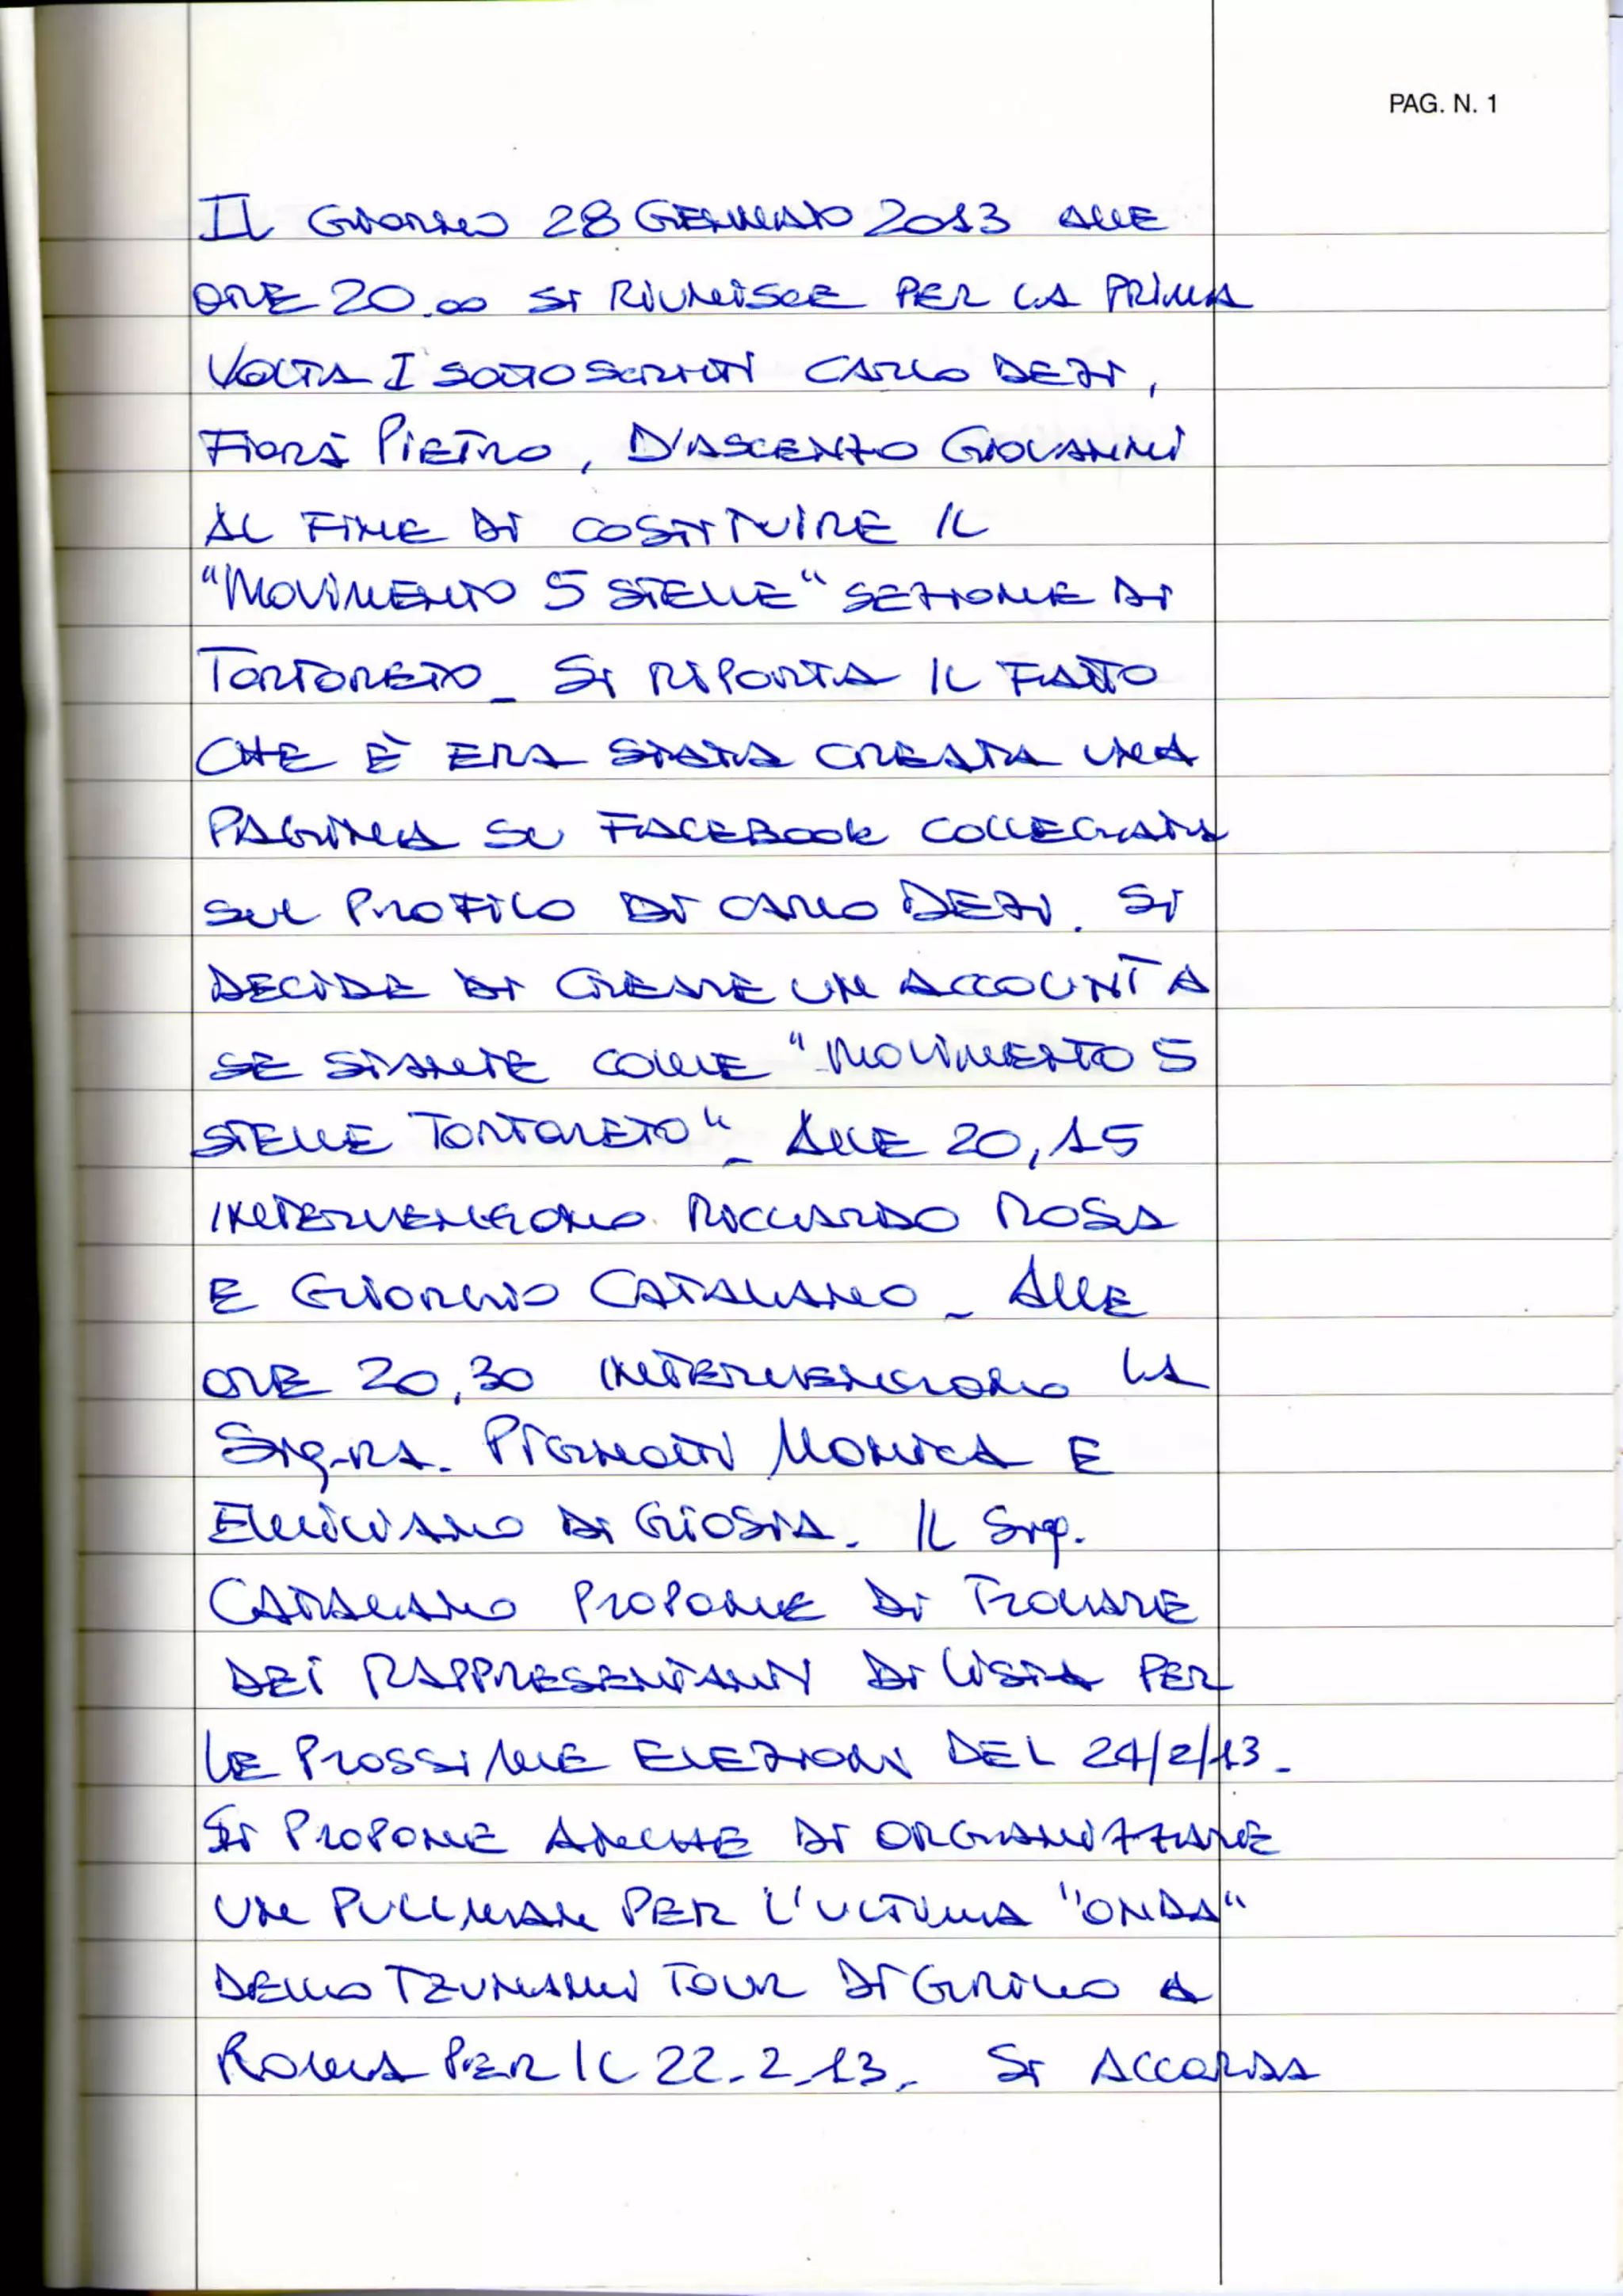 PAG. N. 1
IL GIORNO 28 GENNAIO 2013 ALLE
ORE 20.00 SI RIUNISCE PER LA PRIMA
VOLTA I SOTTOSCRITTI CARLO DEZI,
FIORÀ PIETRO, D'ASCENZO GIOVANNI
AL FINE DI COSTITUIRE IL
"MOVIMENTO 5 STELLE" SEZIONE DI
TORTORETO_ SI RIPORTA IL FATTO
CHE È ERA STATA CREATA UNA
PAGINA SU FACEBOOK COLLEGATA
SUL PROFILO DI CARLO DEZI. SI
DECIDE DI CREARE UN ACCOUNT A
SE STANTE COME "MOVIMENTO 5
STELLE TORTORETO"_ ALLE 20,15
INTERVENGONO RICCARDO ROSA
E GIORGIO CATALANO_ ALLE
ORE 20,30 INTERVENGONO LA
Sig.RA. PIGNOTTI MONICA E
EMILIANO DI GIOSIA. IL Sig.
CATALANO PROPONE DI TROVARE
DEI RAPPRESENTANTI DI LISTA PER
LE PROSSIME ELEZIONI DEL 24/2/13_
SI PROPONE ANCHE DI ORGANIZZARE
UN PULLMAN PER L'ULTIMA "ONDA"
DELLO TZUNAMI TOUR DI GRILLO A
ROMA PER IL 22.2.13. SI ACCORDA